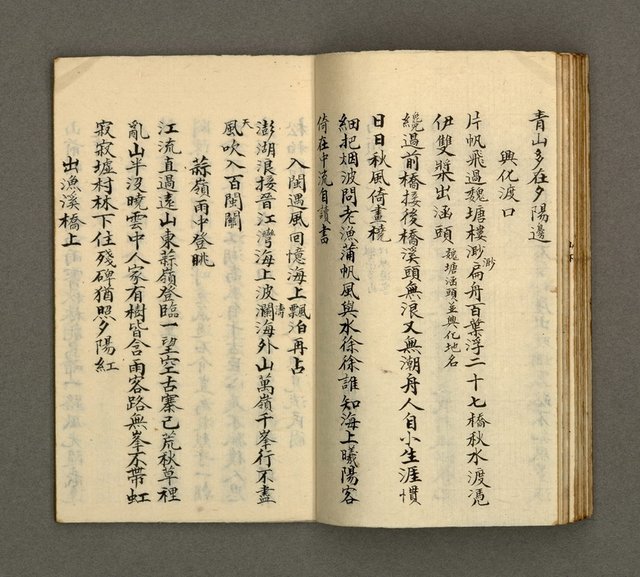 青山多在夕陽邊
興化渡口
片帆飛過魏塘樓渺渺扁舟百葉浮二十七橋秋水渡憑
伊雙槳出涵頭 魏塘涵頭並興化地名
纔過前橋接後橋溪頭無浪又無潮舟人自小生涯慣
日日秋風倚畫橈
細把烟波問老漁蒲帆風與水徐徐誰知海上曦陽客
倚在中流自讀書
入閩遇風回憶海上飄泊再占
澎湖浪接晉江灣海上波瀾海外山萬嶺千峯行不盡
天風吹入百閩關
蒜嶺雨中登眺
江流直過遠山東蒜嶺登臨一望空古寨已荒秋草裡
亂山半沒曉雲中人家有樹皆含雨客路無峯不帶虹
寂寂墟村林下住殘碑猶照夕陽紅
出漁溪橋上